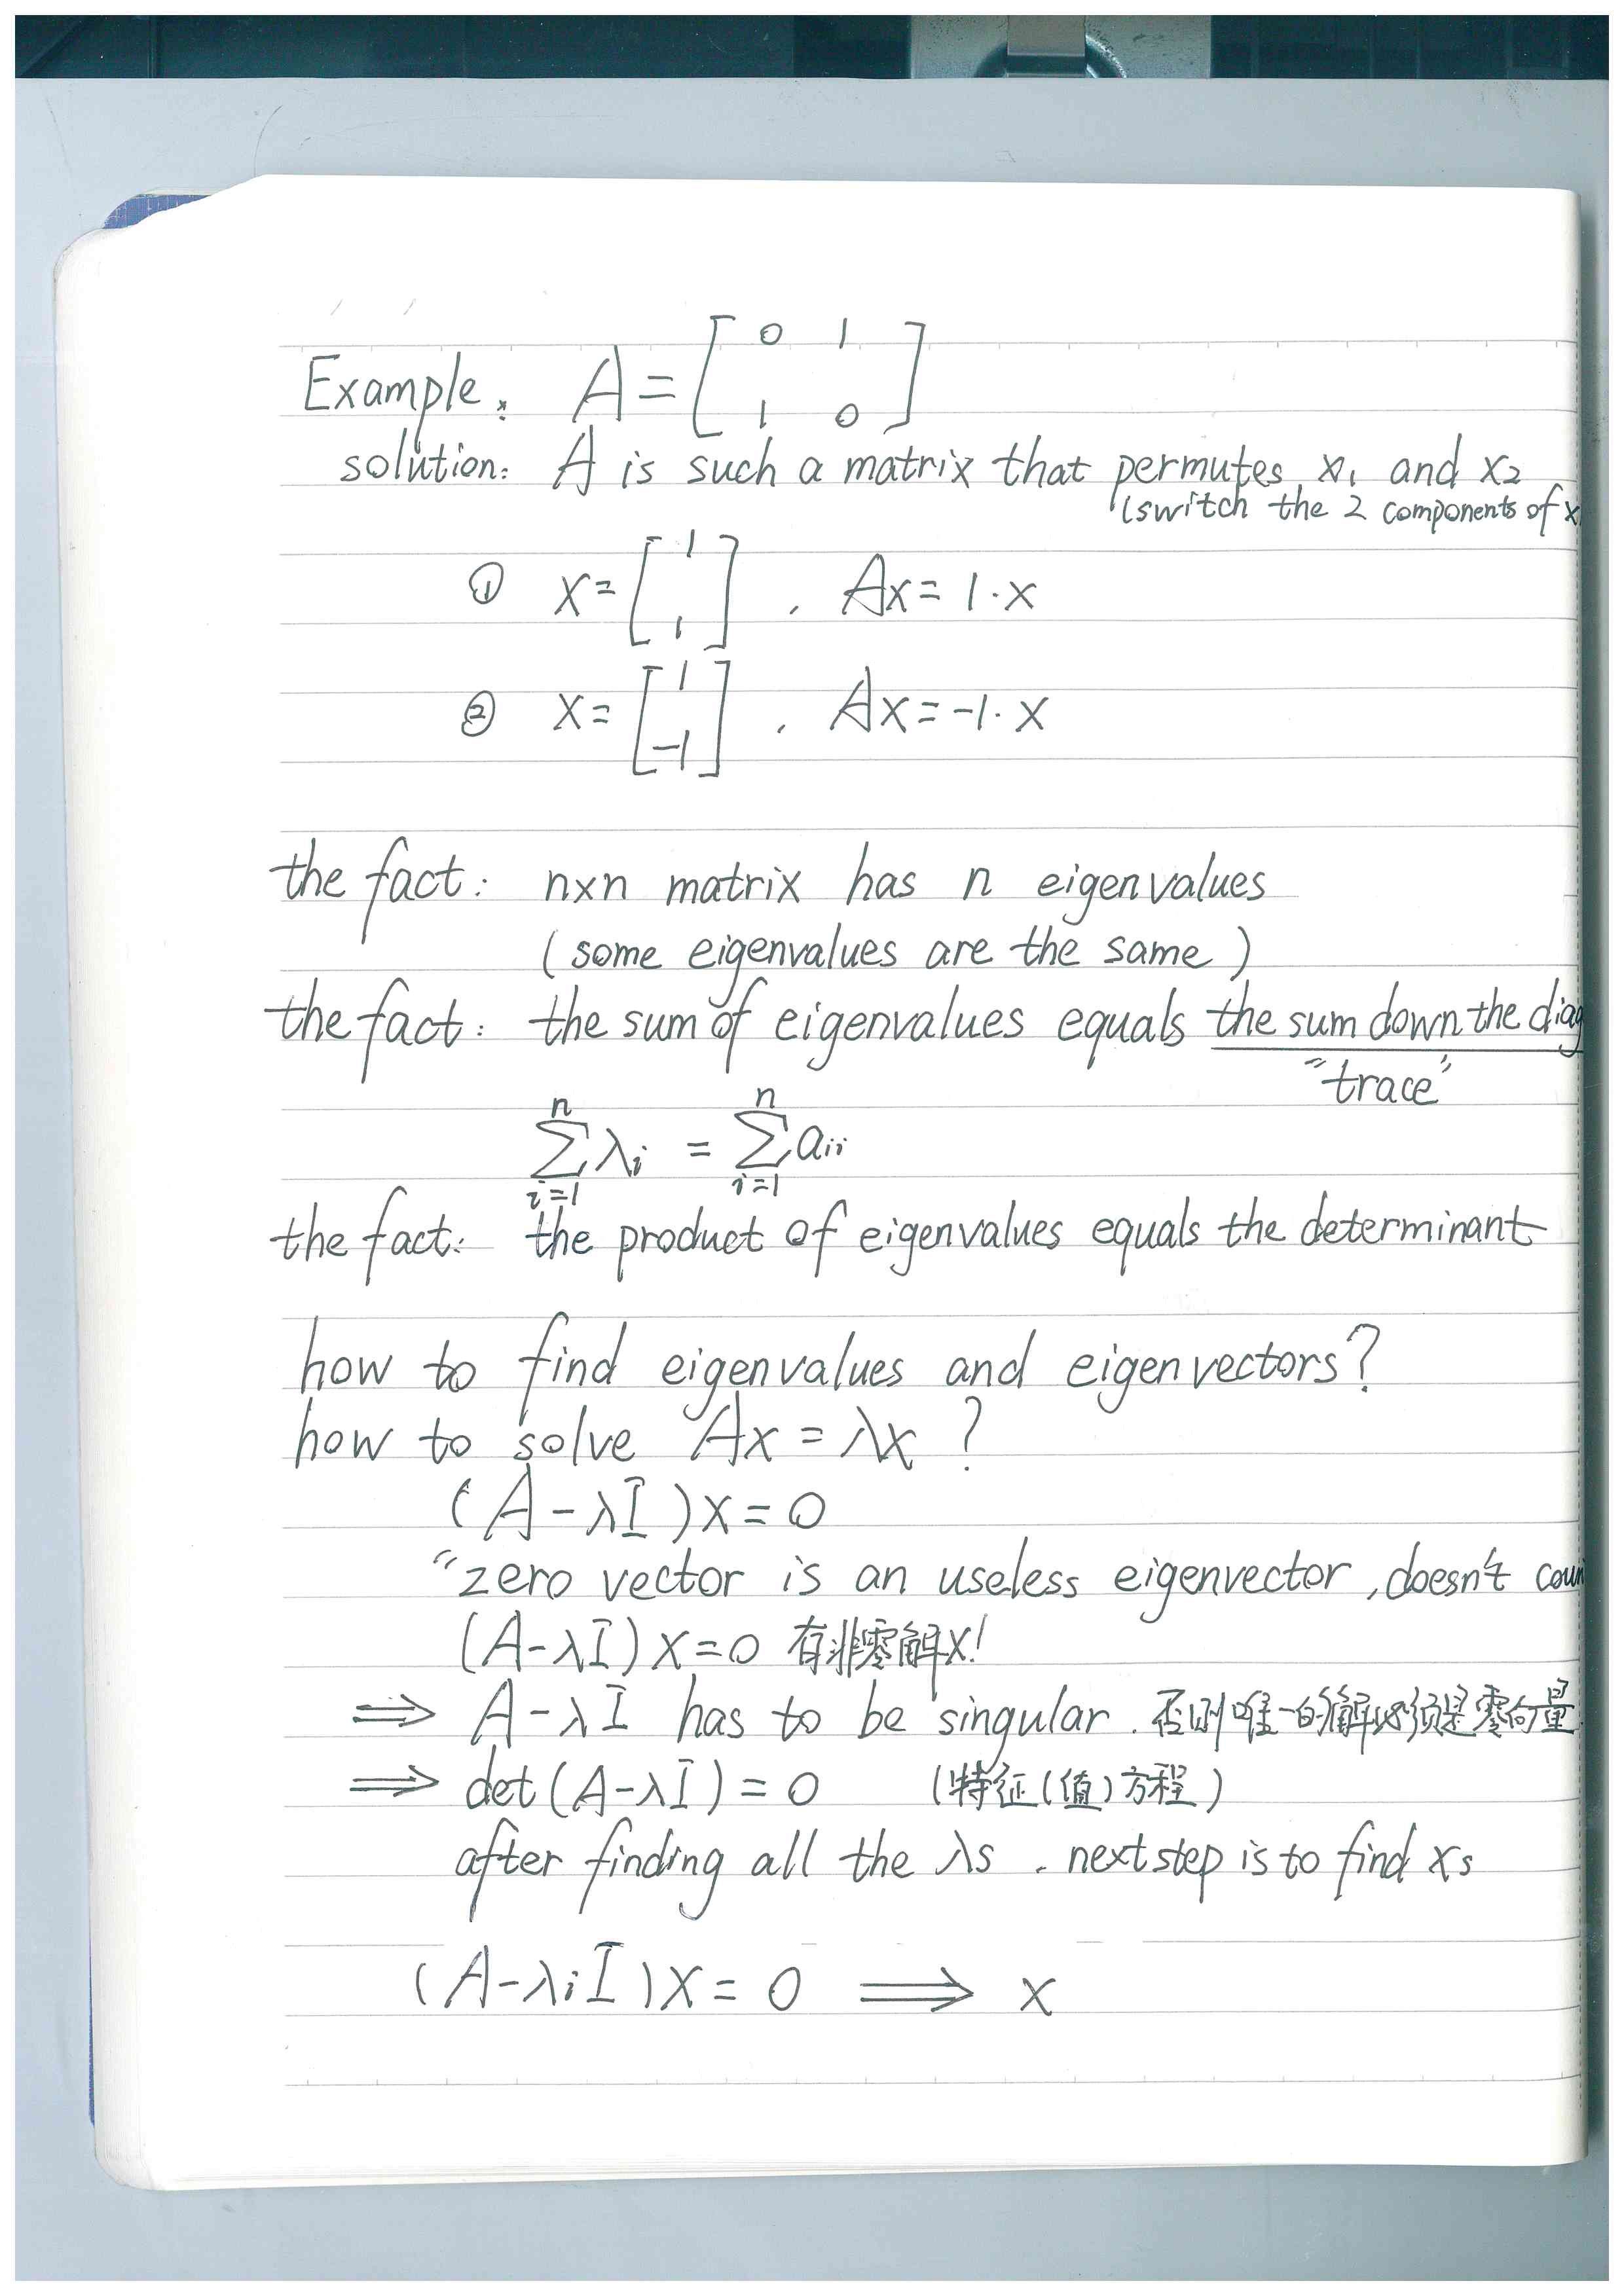 Example: A = [ 0 1 ; 1 0 ]
solution: A is such a matrix that permutes x₁ and x₂
(switch the 2 components of x
① x = [ 1 ; 1 ] , Ax = 1·x
② x = [ 1 ; -1 ] , Ax = -1·x
the fact: n×n matrix has n eigenvalues
(some eigenvalues are the same)
the fact: the sum of eigenvalues equals the sum down the diag
"trace"
∑_{i=1}^{n} λᵢ = ∑_{i=1}^{n} aᵢᵢ
the fact: the product of eigenvalues equals the determinant
how to find eigenvalues and eigenvectors?
how to solve Ax = λx ?
(A - λI)x = 0
"zero vector is an useless eigenvector, doesn't coun
(A - λI)x = 0 有非零解x!
⟹ A - λI has to be singular. 否则唯一的解必须是零向量
⟹ det(A - λI) = 0 (特征(值)方程)
after finding all the λs . next step is to find xs
(A - λᵢI)x = 0 ⟹ x